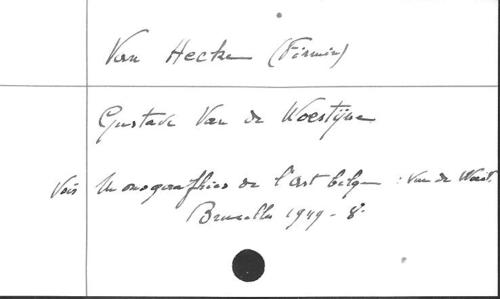 Van Hecke (Firmin)
Gustave Van de Woestijne
Voir Monographies de l'art belge : Van de Woest.
Bruxelles 1949 - 8°